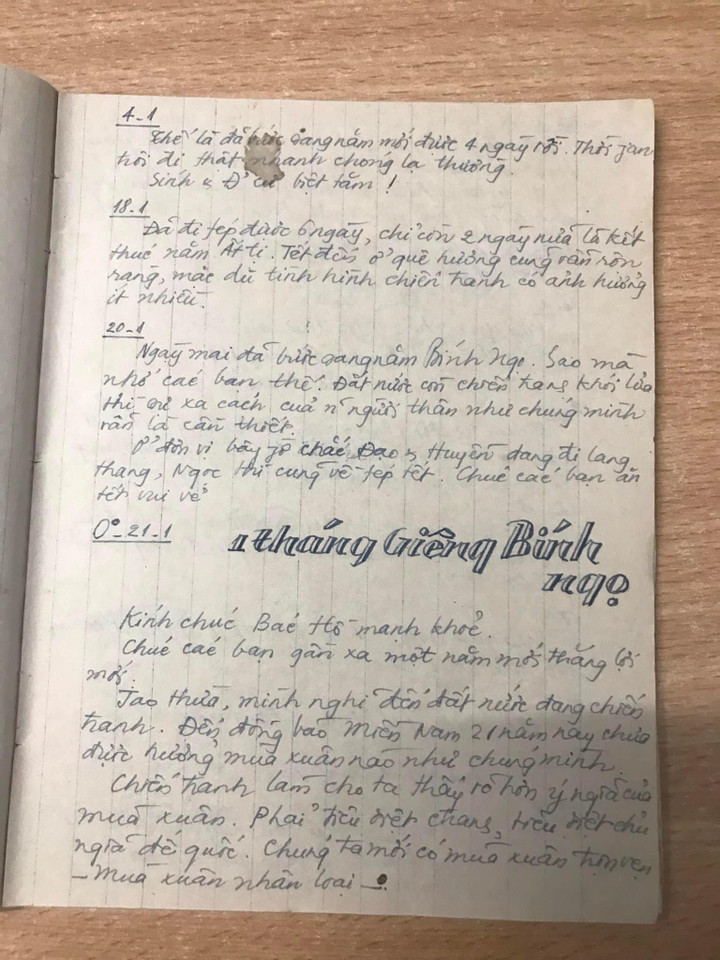 4-1
Thế là đã bước sang năm mới được 4 ngày rồi. Thời jan
trôi đi thật nhanh chóng lạ thường.
Sinh & Đ/c biệt tăm!
18-1
Đã đi fép được 6 ngày, chỉ còn 2 ngày nữa là kết
thúc năm Ất tị. Tết đến ở quê hương cũng vẫn rộn
ràng, mặc dù tình hình chiến tranh có ảnh hưởng
ít nhiều.
20-1
Ngày mai đã bước sang năm Bính Ngọ. Sao mà
nhớ các bạn thế. Đất nước còn chiến tranh khói lửa
thì sự xa cách của n~ người thân như chúng mình
vẫn là cần thiết.
Ở đơn vị bây jờ chắc Đạo & Huyền đang đi lang
thang, Ngọc thì cũng về fép tết. Chúc các bạn ăn
tết vui vẻ
0°-21-1
1 tháng Giêng Bính
ngọ
Kính chúc Bác Hồ mạnh khoẻ.
Chúc các bạn gần xa một năm mới thắng lợi
mới.
Jao thừa, mình nghĩ đến đất nước đang chiến
tranh. Đến đồng bào Miền Nam 21 năm nay chưa
được hưởng mùa xuân nào như chúng mình.
Chiến tranh làm cho ta thấy rõ hơn ý ngĩa của
mùa xuân. Phải tiêu diệt chúng, tiêu diệt chủ
ngĩa đế quốc. Chúng ta mới có mùa xuân trọn vẹn
- Mùa xuân nhân loại -.